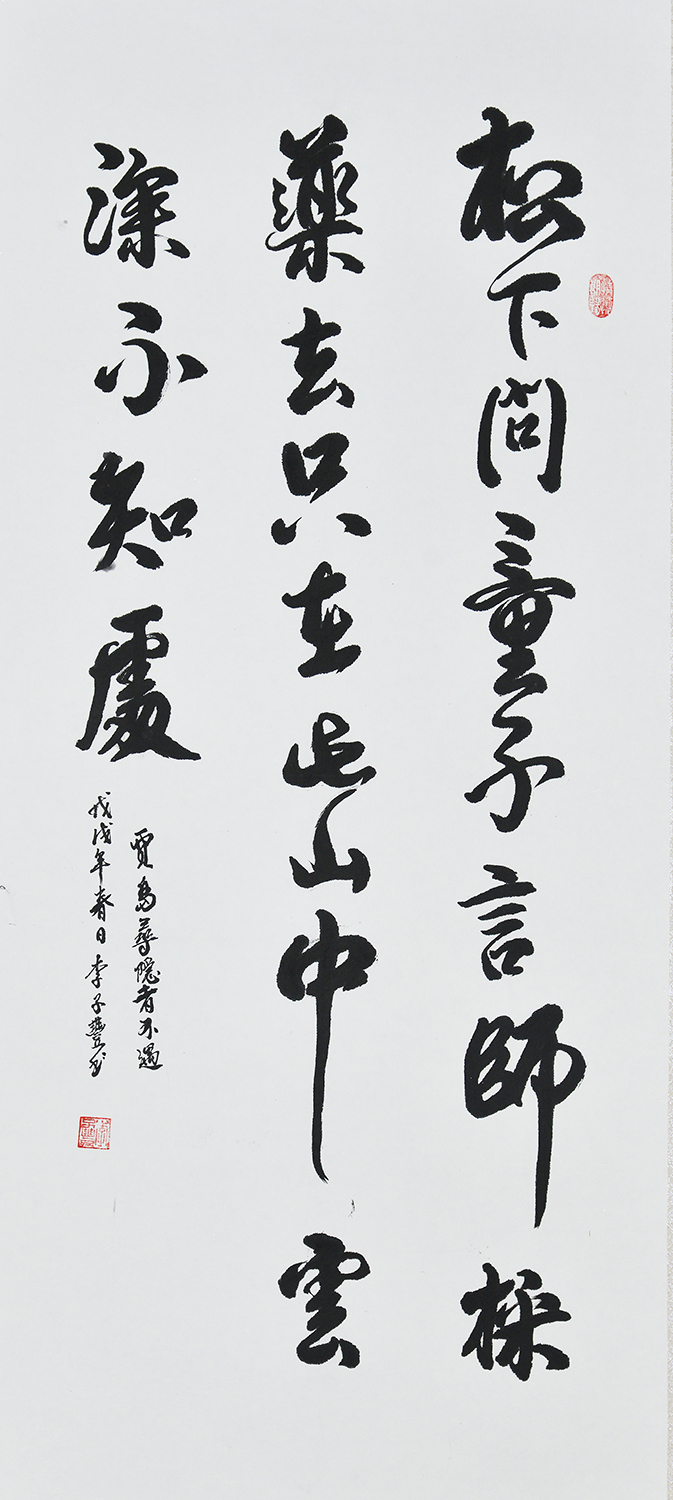 松下問童子言師採
藥去只在此山中雲
深不知處
賈島尋隱者不遇
戊戌年春日李子豐书